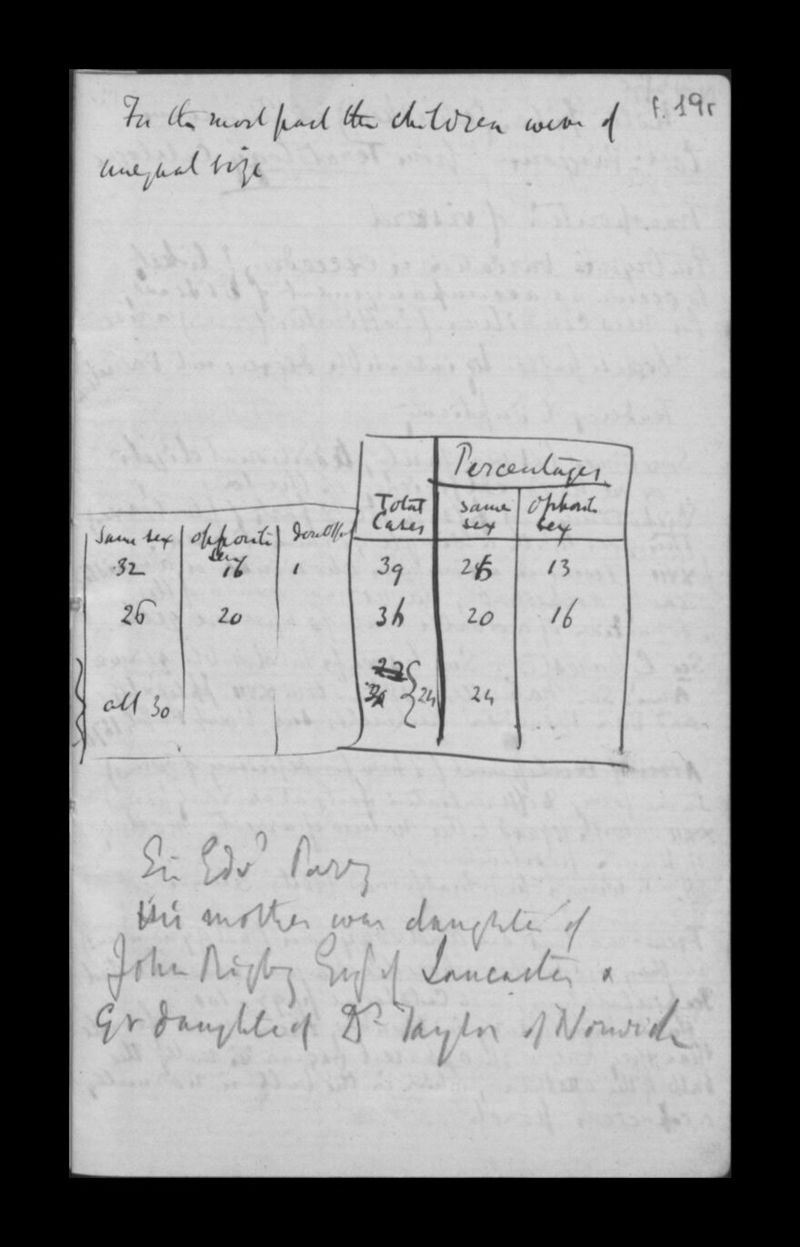 f. 19r
For the most part the children were of
unequal size
Percentages
Total Cases same sex opposite sex
same sex opposite sex doubtful
32 16 1 39 26 13
26 20 36 20 16
all 30 24 24
Sir Edwd Parry
His mother was daughter of
John Rigby Esq of Lancaster &
Gr daughter of Dr Taylor of Norwich